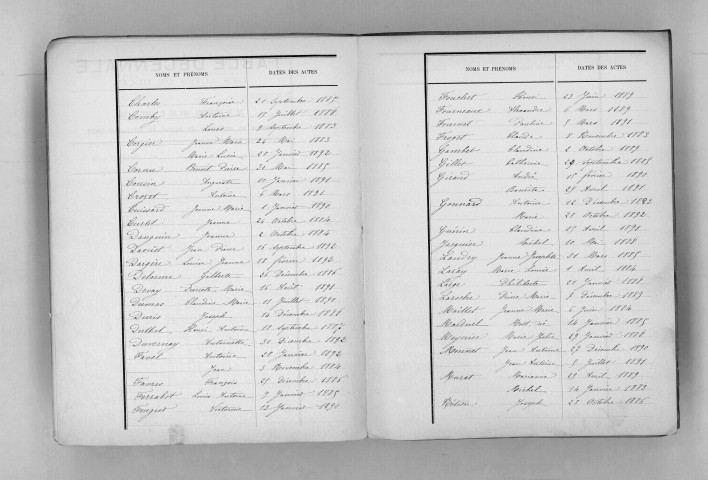 NOMS ET PRÉNOMS DATES DES ACTES
Charles Françoise 21 Septembre 1887
Comby Antoine 18 Juillet 1888
Louis 9 Septembre 1883
Corgier Jeanne Marie 24 Mai 1883
Marie Lucie 28 Janvier 1892
Benoit Pierre 30 Mai 1885
Auguste 10 Janvier 1891
Crozet Antoine 6 Mars 1891
Cuissard Jeanne Marie 1 Janvier 1890
Curtil Jeanne 24 Octobre 1884
Danguin Jeanne 2 Octobre 1884
Jean Pierre 16 Septembre 1892
Dargère Louise Jeanne 18 Février 1892
Delorme Gilberte 26 Décembre 1886
Devay Pierrette Marie 16 Août 1891
Dumas Claudine Marie 11 Juillet 1890
Duris Joseph 14 Décembre 1891
Duthel Henri Antoine 18 Septembre 1887
Duvernay Antoinette 30 Décembre 1892
Antoine 28 Janvier 1892
Jean 3 Novembre 1884
Favres François 21 Décembre 1886
Louis Antoine 9 Janvier 1885
Victorine 13 Janvier 1891
NOMS ET PRÉNOMS DATES DES ACTES
Fouchet 23 Juin 1889
Fourneaux Alexandre 6 Mars 1889
Pauline 8 Mars 1891
Froget Claude 8 Novembre 1883
Gambet Claudine 2 Octobre 1889
Gillet Catherine 29 Septembre 1885
Girand André 18 Février 1890
Benoite 29 Avril 1891
Gonnard Antoine 12 Décembre 1882
Marie 21 Octobre 1892
Guérin Claudine 19 Avril 1891
Jacquier Michel 10 Mai 1888
Landry Jeanne Josephte 31 Mars 1885
Marie Louise 1 Avril 1884
Philiberte 21 Janvier 1888
Laroche Marie 9 Décembre 1889
Maillet Jeanne Marie 6 Juin 1884
Mort né 14 Janvier 1885
Meynier Marie Julie 29 Janvier 1888
Moninet Jean Antoine 27 Décembre 1890
Jean Antoine 9 Juillet 1891
Murat Marianne 21 Avril 1889
Michel 14 Janvier 1883
Joseph 21 Octobre 1886